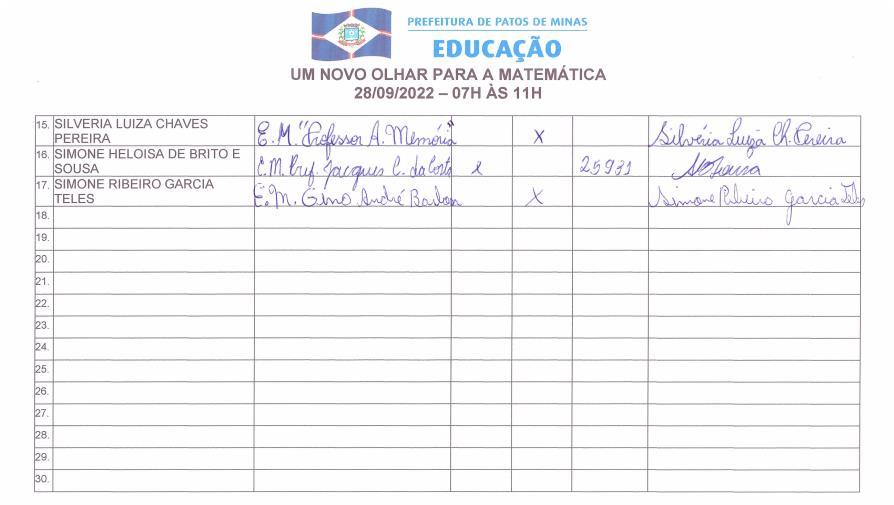 PREFEITURA DE PATOS DE MINAS
EDUCAÇÃO
UM NOVO OLHAR PARA A MATEMÁTICA
28/09/2022 – 07H ÀS 11H
15. SILVERIA LUIZA CHAVES PEREIRA E.M. "Professor A. Memória" X Silvéria Luiza Ch. Pereira
16. SIMONE HELOISA DE BRITO E SOUSA E.M. Prof. Jacques C. da Costa x 25931
17. SIMONE RIBEIRO GARCIA TELES E.M. Gino André Barbosa X Simone Ribeiro Garcia Teles
18.
19.
20.
21.
22.
23.
24.
25.
26.
27.
28.
29.
30.